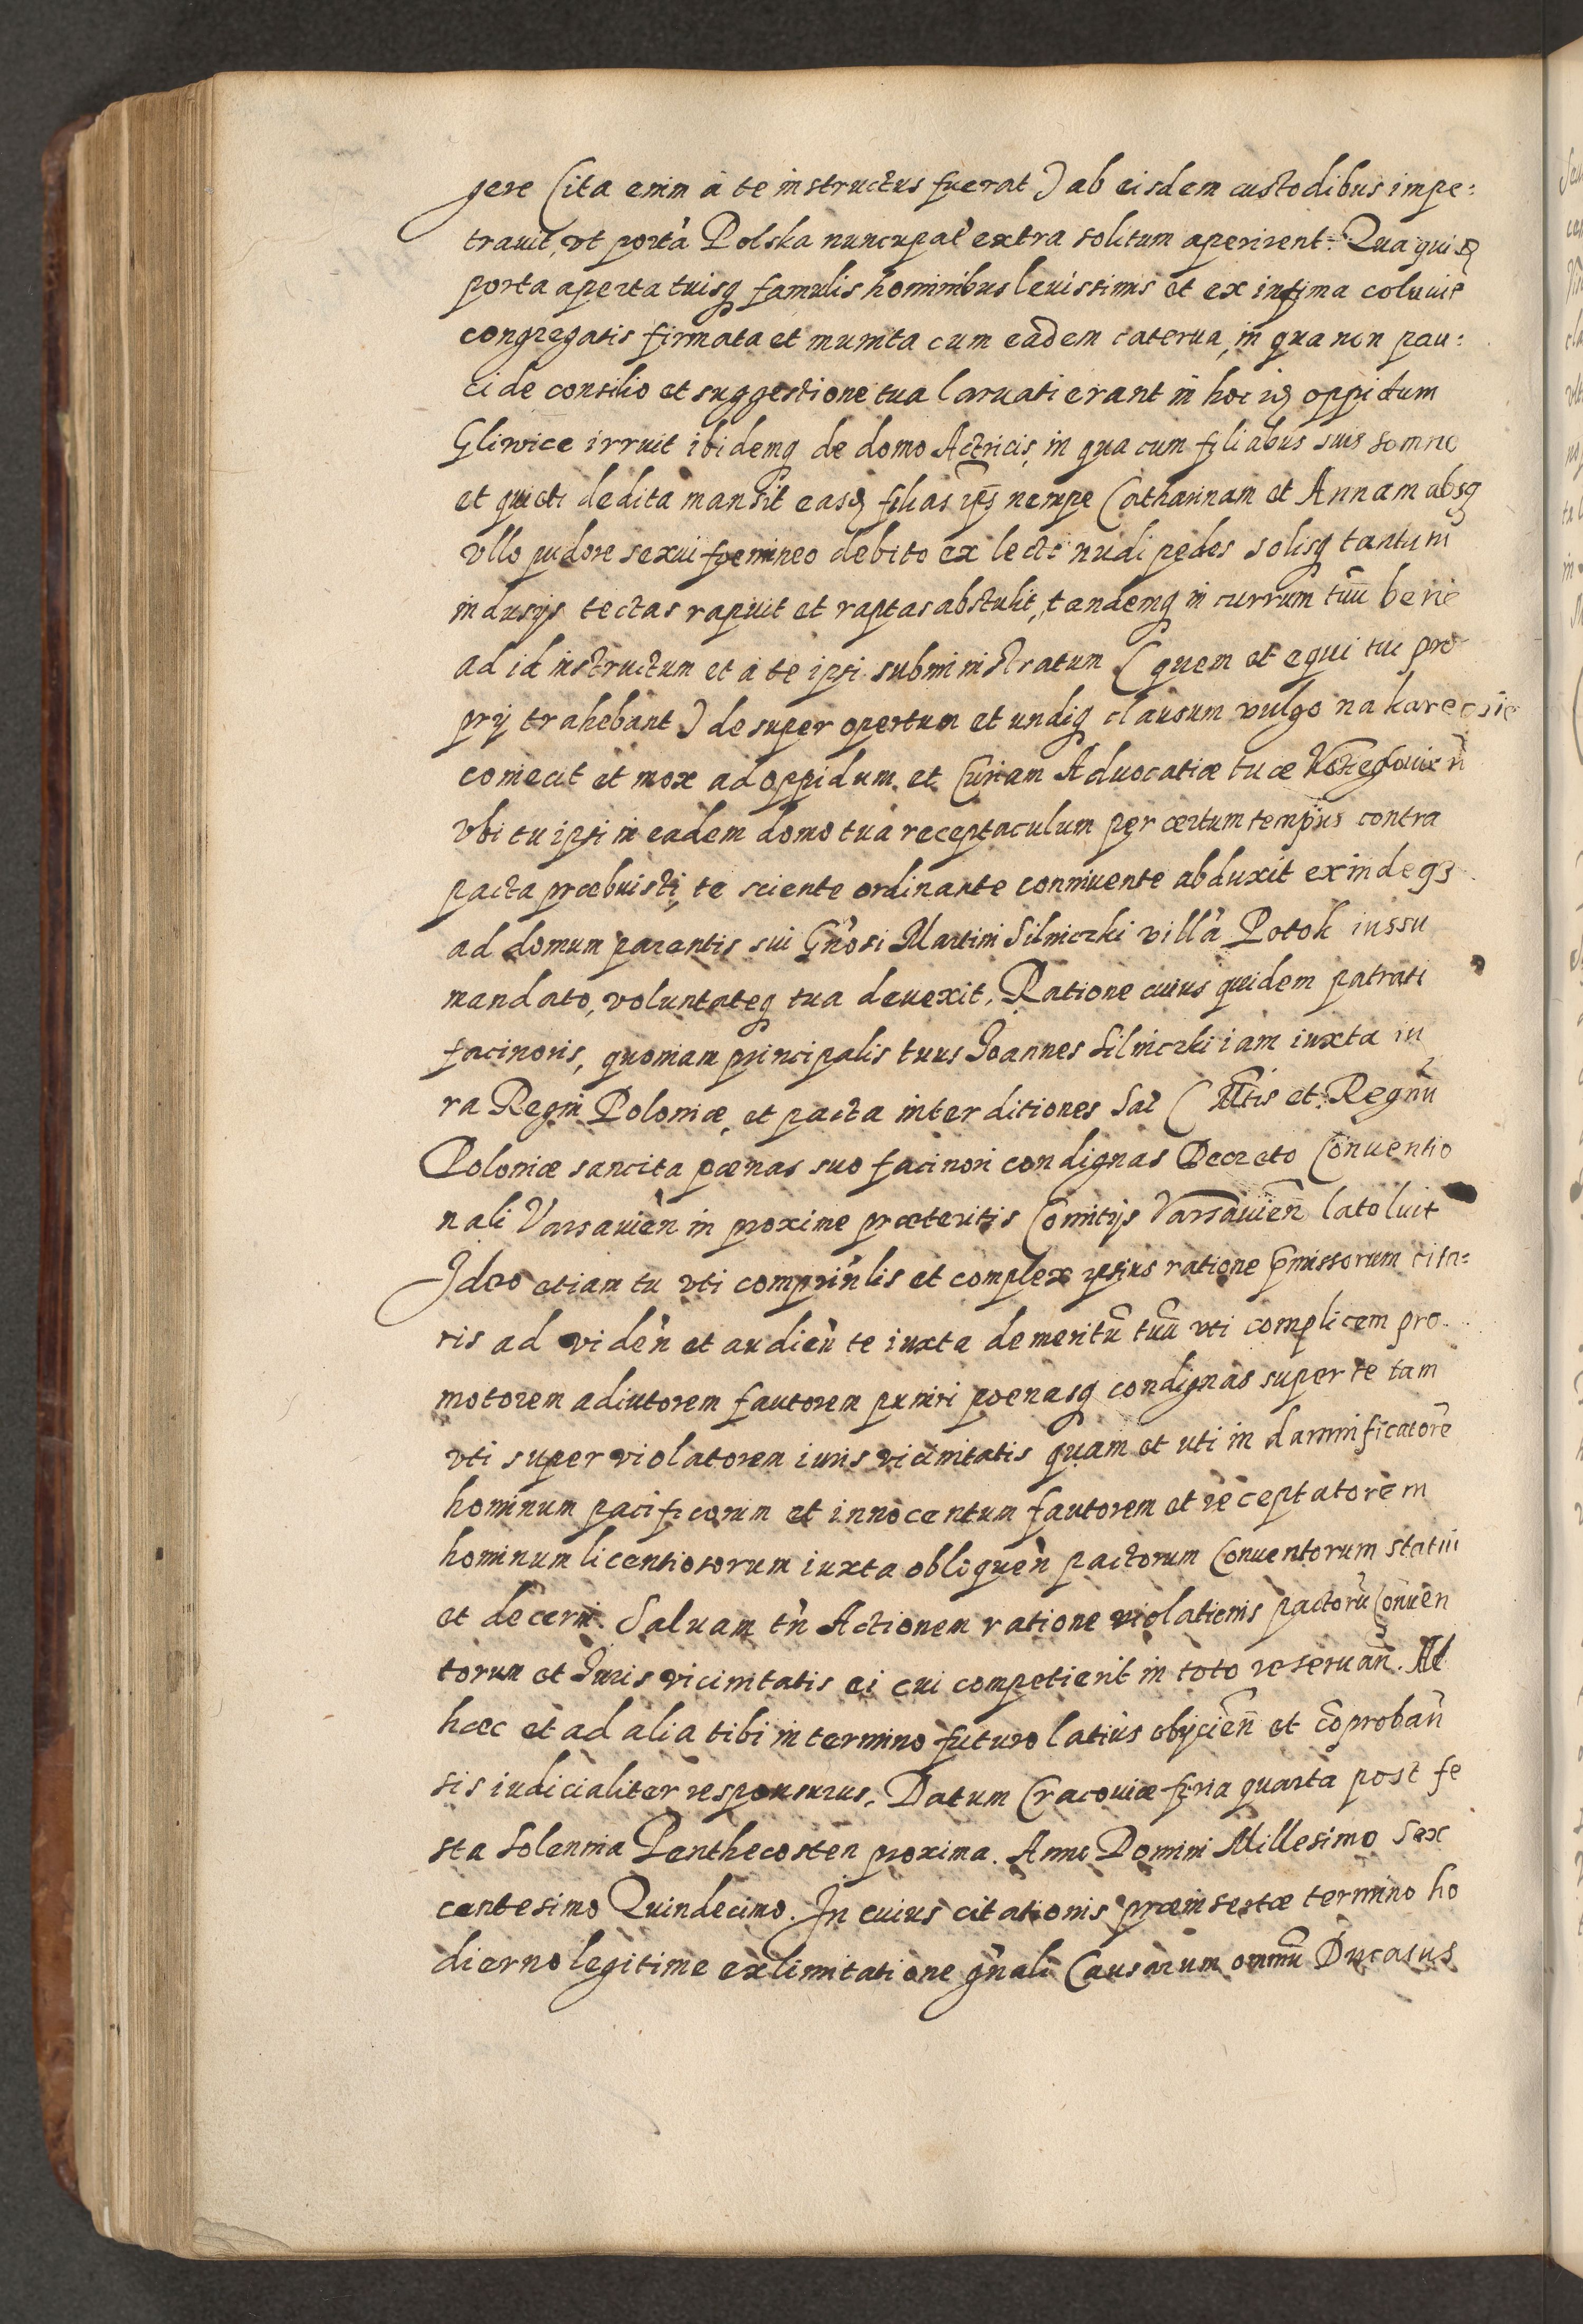 gere (ita enim à te instructus fuerat) ab eisdem custodibus impe:
trauit, vt portã Polska nuncupat̃ extra solitum aperirent. Qua quidẽ
porta aperta tuisq famulis hominibus leuissimis et ex infima coluuie
congregatis firmata et munita cum eadem caterua, in qua non pau:
ci de consilio et suggestione tua laruati erant in hoc idq oppidum
Gliwice irruit ibidemq de domo Actricis, in qua cum filiabus suis somno
et quieti dedita mansit easq filias ips̃ nempe Catharinam et Annam absq
vllo pudore sexui foemineo debito ex lecto nudi pedes solisq tantum
indusijs tectas rapuit et raptas abstulit, tandemq in currum tuũ bene
ad id instructum et à te ipsi subministratum (quem et equi tui pro
prij trahebant) desuper opertum et undiq clausum vulgo na karecsie
coniecit et mox ad oppidum et Curiam Aduocatiæ tuæ
vbi tu ipsi in eadem domo tua receptaculum per certum tempus contra
pacta præbuisti, te sciente ordinante conniuente abduxit exindeq3
ad domum parentis sui Gñosi Martini Silniczki villã Potok iussu
mandato, voluntateq tua deuexit. Ratione cuius quidem patrati
facinoris, quoniam principalis tuus Joannes Silniczki iam iuxta iu
ra Regni Poloniæ, et pacta inter ditiones Sac̃ C Mtis et Regnũ
Poloniæ sancita pœnas suo facinori condignas Decreto Conuentio
nali Varsauieñ in proxime præteritis Comitijs Varsauieñ lato luit
Ideo etiam tu vti comprinlis et complex ipsius ratione p̃missorum cita:
ris ad videñ et audieñ te iuxta demeritũ tuũ vti complicem pro
motorem adiutorem fautorem puniri poenasq condignas super te tam
vti super violatorem iuris vicinitatis quam et uti in damnificatorẽ
hominum pacificorum et innocentum fautorem et receptatorem
hominum licentiosorum iuxta obloqueñ pactorum Conuentorum statui
et decerni. Saluam tñ Actionem ratione violationis pactorũ Conuen
torum et Juris vicinitatis ei cui competierit in toto reseruañ. Ad
hæc et ad alia tibi in termino futuro latius obijcieñ et cõprobañ
sis iudicialiter responsurus. Datum Cracouiæ feria quarta post fe
sta solennia Penthecosten proxima. Anno Domini Millesimo Sex
centesimo Quindecimo. In cuius citationis præinsertæ termino ho
dierno legitime ex limitatione gñali Causarum omniũ Ducatus